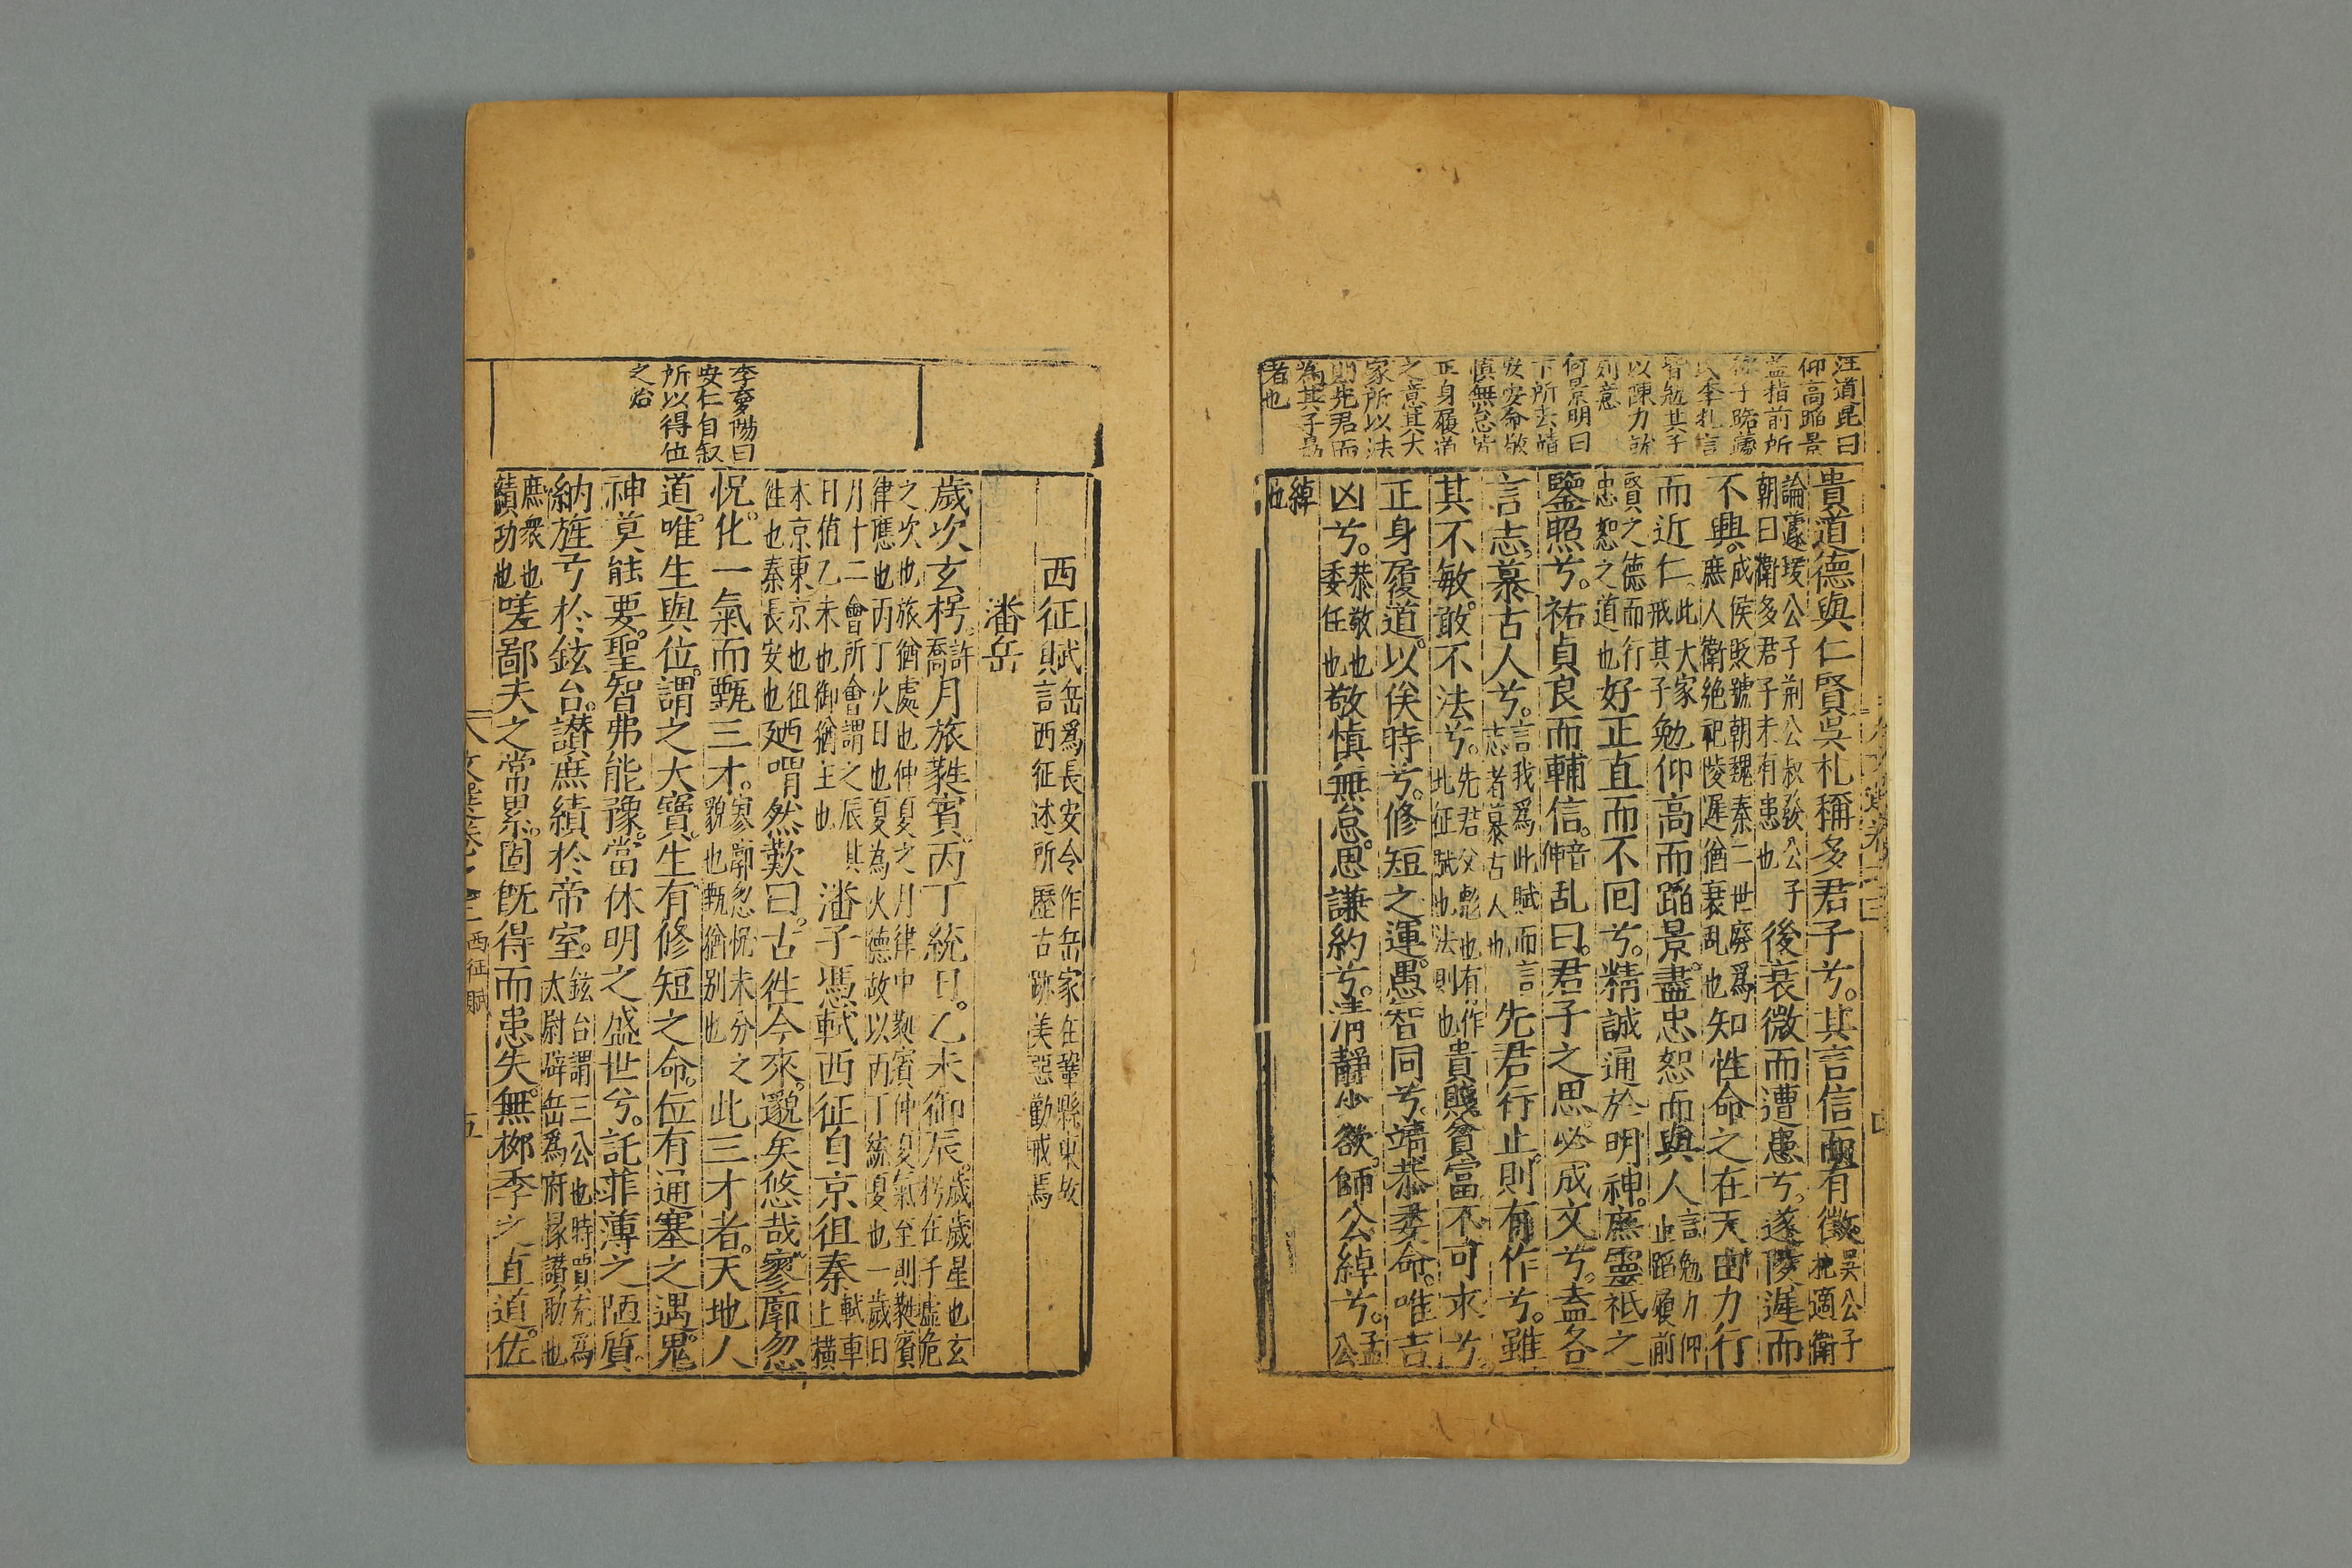 汪道昆曰
仰高蹈景
盖指前所
稱子路蘧
氏季札言
皆勉其子
以陳力就
列意
何景明曰
下所云情
安安命敬
慎無怠皆
正身履道
之意其大
家所以法
則先君而
為其子勗
者也
貴道德與仁賢吳札稱多君子兮其言信而有徵吳公子札適衛
論蘧瑗公子荊公叔發公子朝曰衛多君子未有患也後衰微而遭患兮遂陵遲而
不興成侯貶號朝魏秦二世廢爲庶人衛絕祀陵遲猶衰亂也知性命之在天由力行
而近仁此大家戒其子勉仰高而蹈景盡忠恕而與人言勉力仰止蹈履前
賢之德而行忠恕之道也好正直而不回兮精誠通於明神庶靈祇之
鑒照兮祐貞良而輔信音伸乱曰君子之思必成文兮盍各
言志慕古人兮言我爲此賦而言志者慕古人也先君行止則有作兮雖
其不敏敢不法兮先君父彪也有作北征賦也法則也貴賤貧富不可求兮
正身履道以俟時兮修短之運愚智同兮靖恭委命唯吉
凶兮恭敬也委任也敬慎無怠思謙約兮清靜少欲師公綽兮孟公
綽也
李夢陽曰
安仁自叙
所以得位
之始
西征賦岳爲長安令作岳家在鞏縣東故言西征述所歷古跡美惡勸戒焉
潘岳
歲次玄枵許喬月旅蕤賓丙丁統日乙未御辰歲歲星也玄枵在子虛危
之次也旅猶處也仲夏之月律中蕤賓仲夏氣至則蕤賓律應也丙丁火日也夏為火德故以丙丁統夏也一歲日
月十二會所會謂之辰其日值乙未也御猶主也潘子憑軾西征自京徂秦軾車上橫
木京東京也徂往也秦長安也廼喟然歎曰古往今來邈矣悠哉寥廓忽
怳化一氣而甄三才寥廓忽怳未分之貌也甄猶别也此三才者天地人
道唯生與位謂之大寶生有修短之命位有通塞之遇鬼
神莫能要聖智弗能豫當休明之盛世兮託菲薄之陋質
納旌弓於鉉台讃庶績於帝室鉉台謂三公也時賈充爲太尉辟岳爲府掾讃助也
庶衆也績功也嗟鄙夫之常累固既得而患失無栁季之直道佐
文選卷之三 西征賦 五